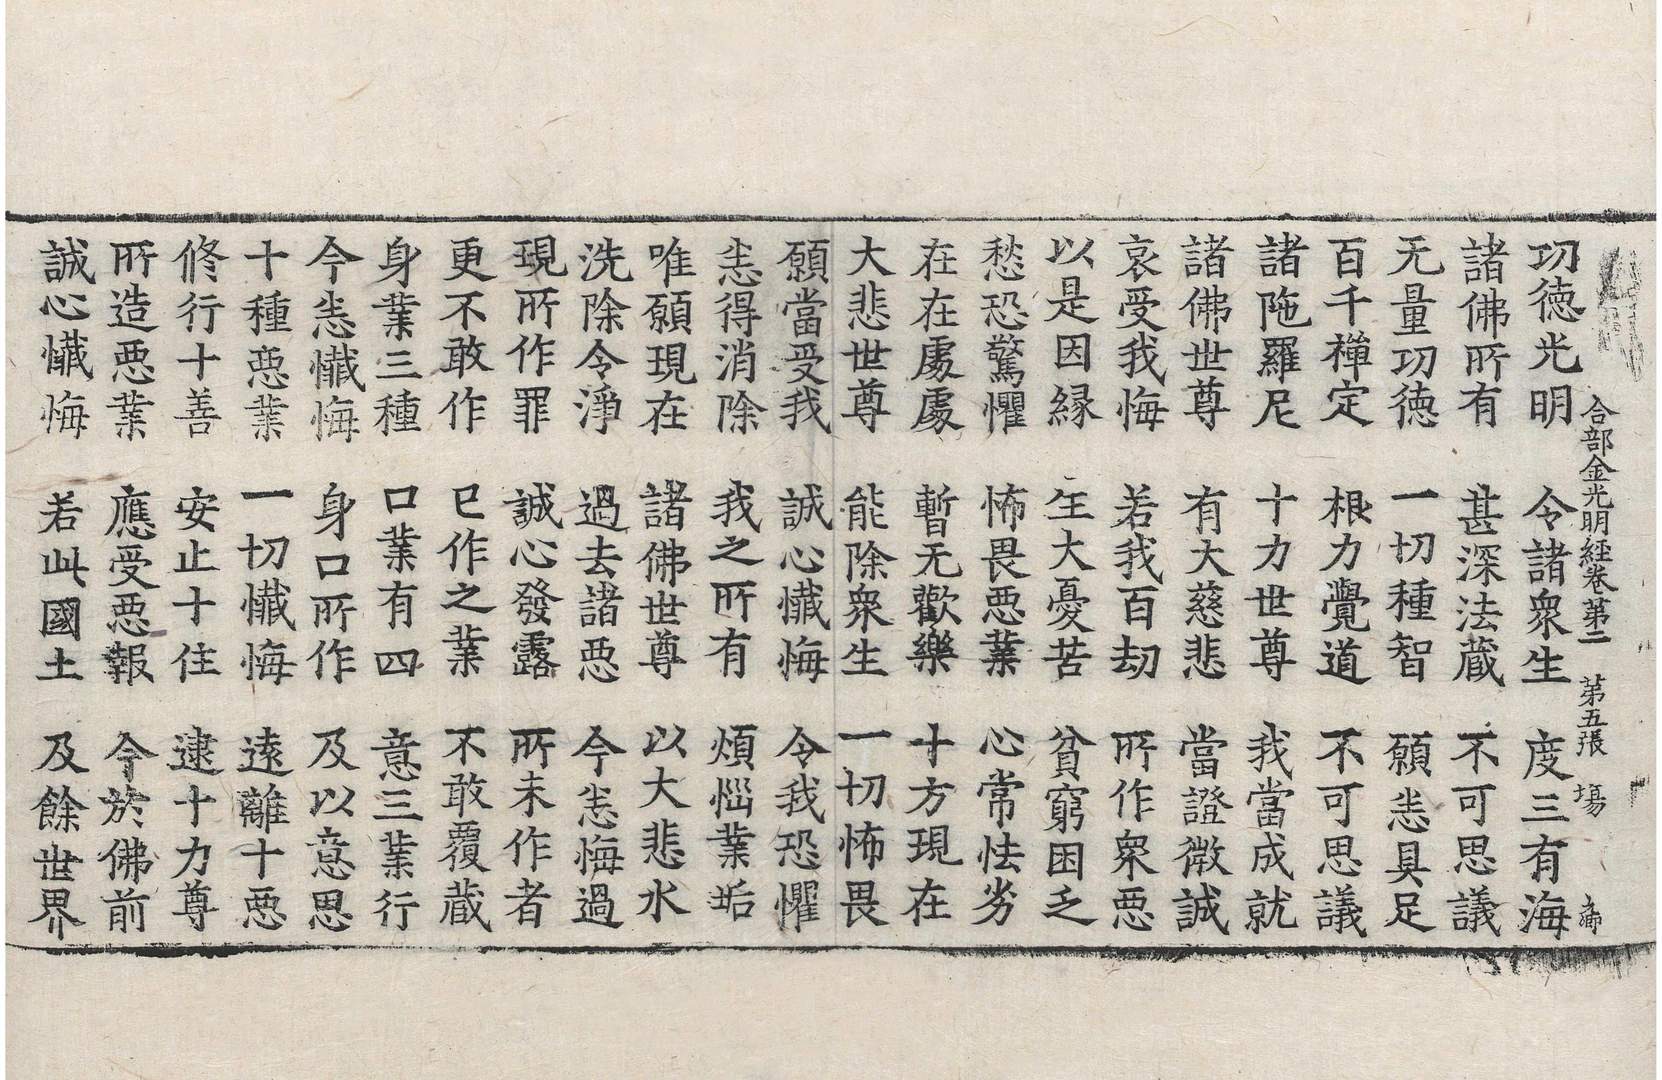 合部金光明經卷第二 第五張 場
功德光明 令諸衆生 度三有海
諸佛所有 甚深法藏 不可思議
无量功德 一切種智 願悉具足
百千禪定 根力覺道 不可思議
諸陁羅尼 十力世尊 我當成就
諸佛世尊 有大慈悲 當證微誠
哀受我悔 若我百劫 所作衆惡
以是因縁 生大憂苦 貧窮困乏
愁恐驚懼 怖畏惡業 心常怯劣
在在處處 暫无歡樂 十方現在
大悲世尊 能除衆生 一切怖畏
願當受我 誠心懺悔 令我恐懼
悉得消除 我之所有 煩惱業垢
唯願現在 諸佛世尊 以大悲水
洗除令淨 過去諸惡 今悉悔過
現所作罪 誠心發露 所未作者
更不敢作 已作之業 不敢覆藏
身業三種 口業有四 意三業行
今悉懺悔 身口所作 及以意思
十種惡業 一切懺悔 遠離十惡
修行十善 安止十住 逮十力尊
所造惡業 應受惡報 今於佛前
誠心懺悔 若此國土 及餘世界